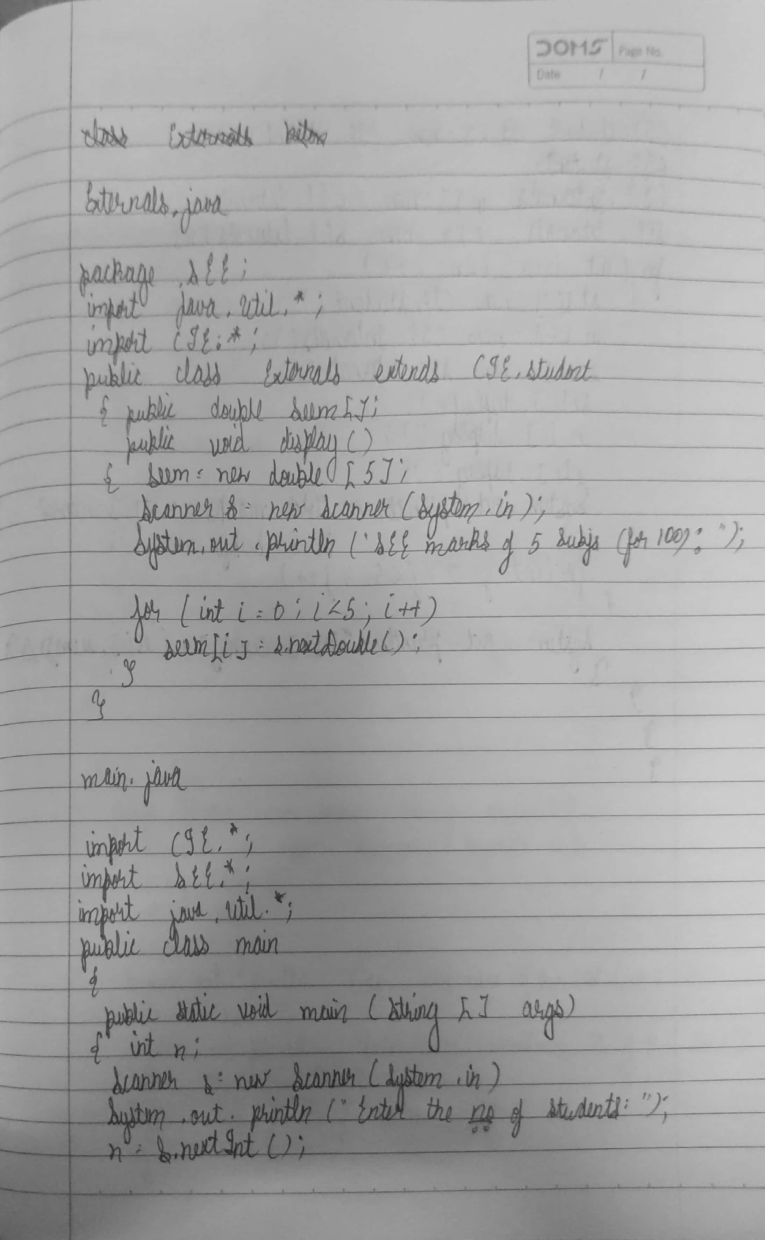 DOMS Page No.
Date / /
class Externals
Externals.java
package SEE;
import java.util.*;
import CIE.*;
public class Externals extends CIE.student
{ public double seem[];
public void display()
{ seem = new double[5];
Scanner s = new Scanner(System.in);
System.out.println("SEE marks of 5 subjs (for 100): ");
for (int i = 0; i<5; i++)
seem[i] = s.nextDouble();
}
}
main.java
import CIE.*;
import SEE.*;
import java.util.*;
public class main
{
public static void main (String [] args)
{ int n;
Scanner s = new Scanner(System.in)
System.out.println("Enter the no of students: ");
n = s.nextInt();